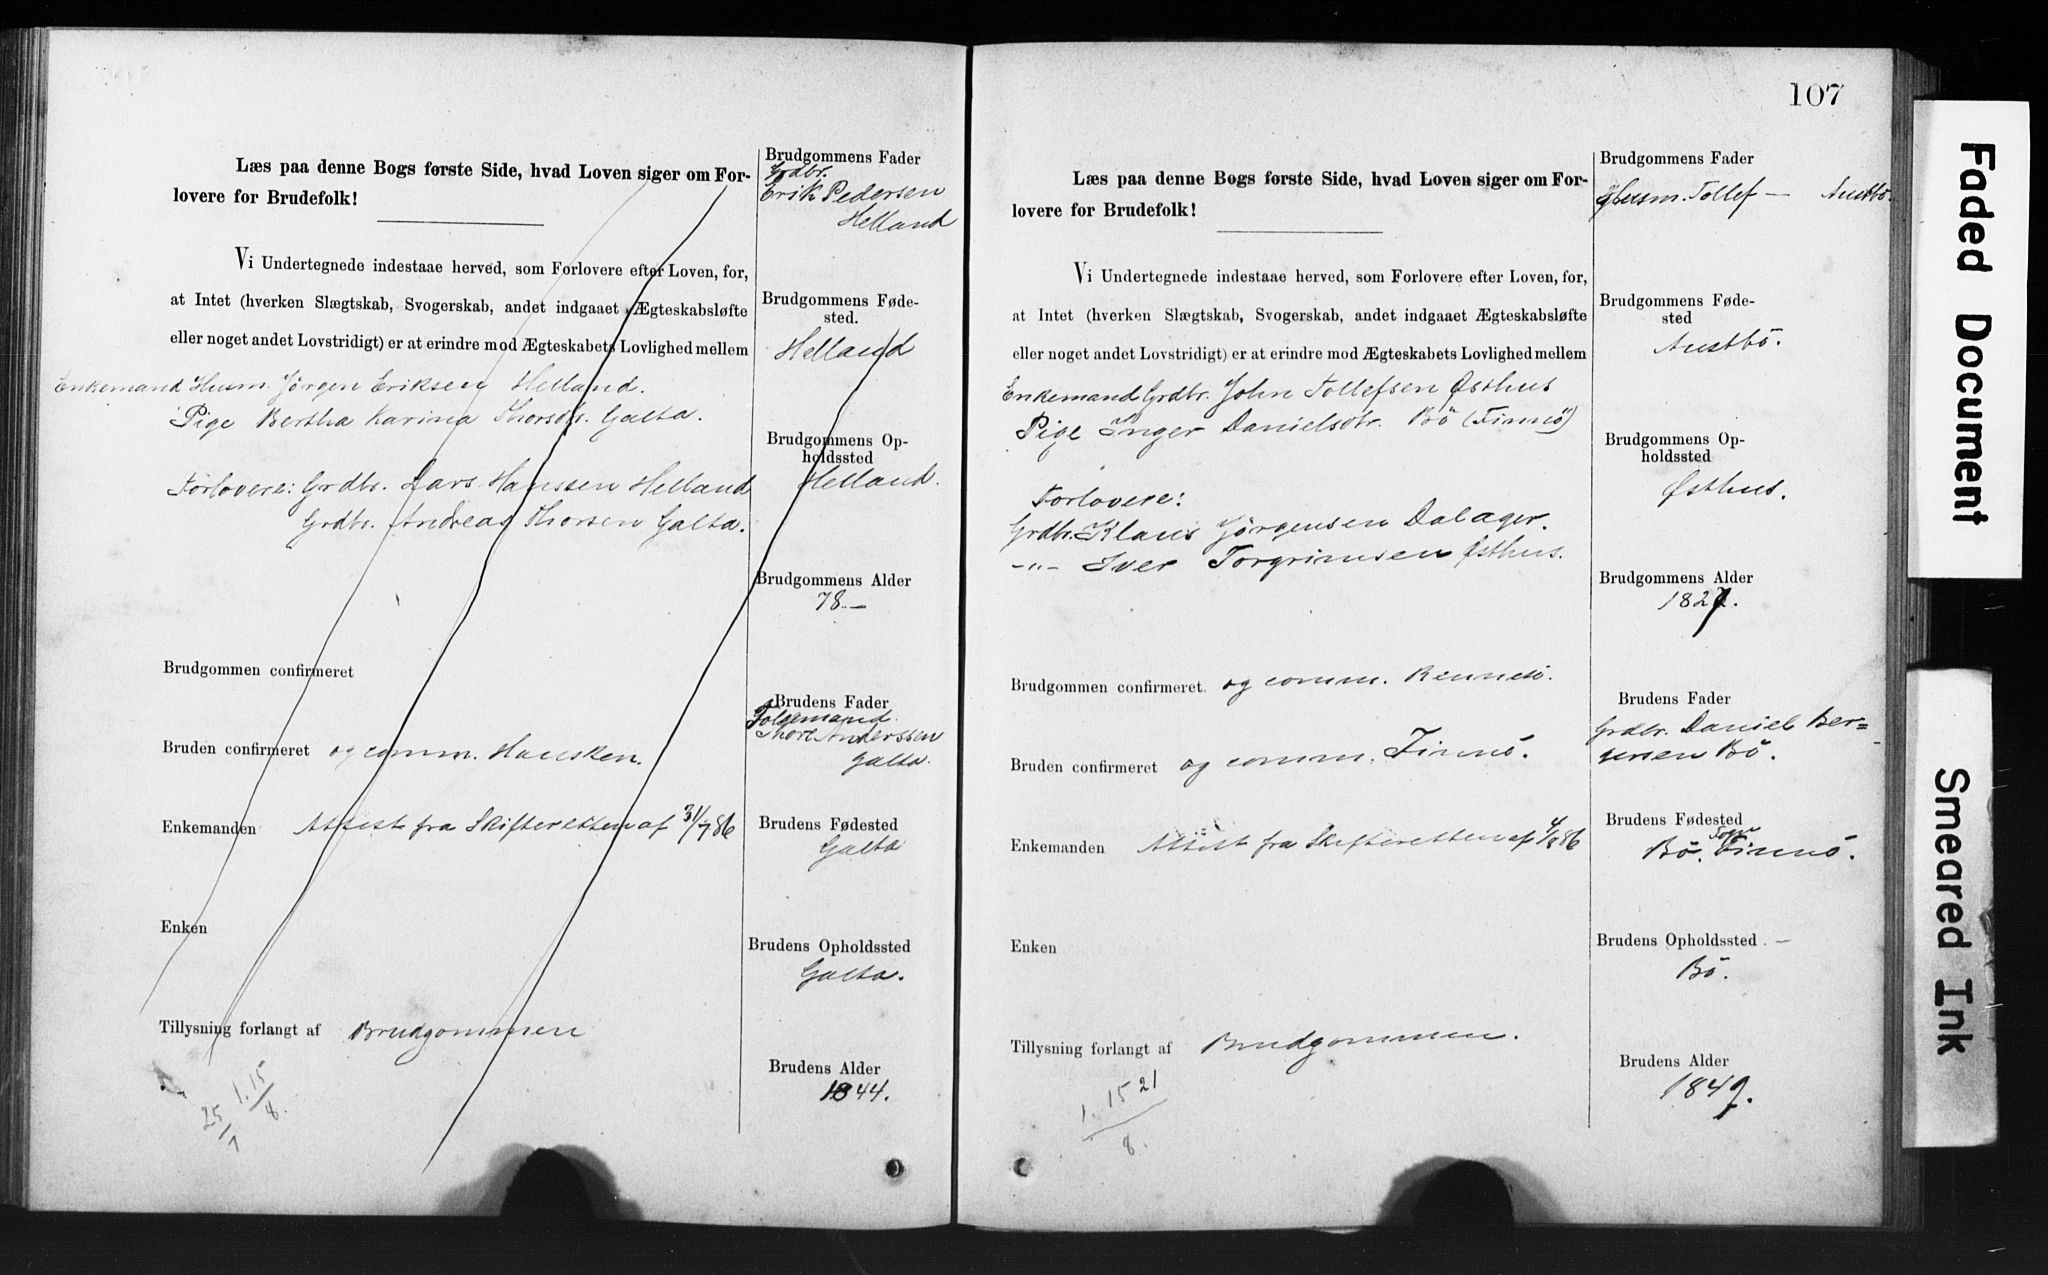 Læs paa denne Bogs første Side, hvad Loven siger om For-
lovere for Brudefolk!
Vi Undertegnede indestaae herved, som Forlovere efter Loven, for,
at Intet (hverken Slægtskab, Svogerskab, andet indgaaet Ægteskabsløfte
eller noget andet Lovstridigt) er at erindre mod Ægteskabets Lovlighed mellem
Enkemand Husm. Jørgen Eriksen Helland.
Pige Bertha Karina Thorsdr. Galta.
Forlovere: Grdbr. Lars Hanssen Helland
Grdbr. Andreas Thorsen Galta.
Brudgommen confirmeret
Bruden confirmeret og comm. Hausken.
Enkemanden Attest fra Skifteretten af 31/7 86
Enken
Tillysning forlangt af Brudgommen
1. 15/8.
25/7
Brudgommens Fader
Grdbr.
Erik Pedersen
Helland
Brudgommens Føde-
sted.
Helland
Brudgommens Op-
holdssted
Helland.
Brudgommens Alder
78.—
Brudens Fader
Folgemand
Thore Anderssen
Galta.
Brudens Fødested
Galta
Brudens Opholdssted
Galta.
Brudens Alder
1844.
107
Læs paa denne Bogs første Side, hvad Loven siger om For-
lovere for Brudefolk!
Vi Undertegnede indestaae herved, som Forlovere efter Loven, for,
at Intet (hverken Slægtskab, Svogerskab, andet indgaaet Ægteskabsløfte
eller noget andet Lovstridigt) er at erindre mod Ægteskabets Lovlighed mellem
Enkemand Grdbr. John Tollefsen Østhus
Pige Inger Danielsdtr. Bö (Finnö)
Forlovere:
Grdbr. Klaus Jørgensen Dalager.
-"- Iver Torgrimsen Østhus.
Brudgommen confirmeret og comm. Rennesö.
Bruden confirmeret og comm. Finnö.
Enkemanden Attest fra Skifteretten af 4/8 86
Enken
Tillysning forlangt af Brudgommen.
1. 15 21
8.
Brudgommens Fader
Husm. Tollef — Austbö.
Brudgommens Føde-
sted
Austbö.
Brudgommens Op-
holdssted
Østhus.
Brudgommens Alder
1827.
Brudens Fader
Grdbr. Daniel Ber=
gersen Bö.
Brudens Fødested
Sogn
Bö. Finnö.
Brudens Opholdssted —
Bö.
Brudens Alder
1849.
Faded Document
Smeared Ink